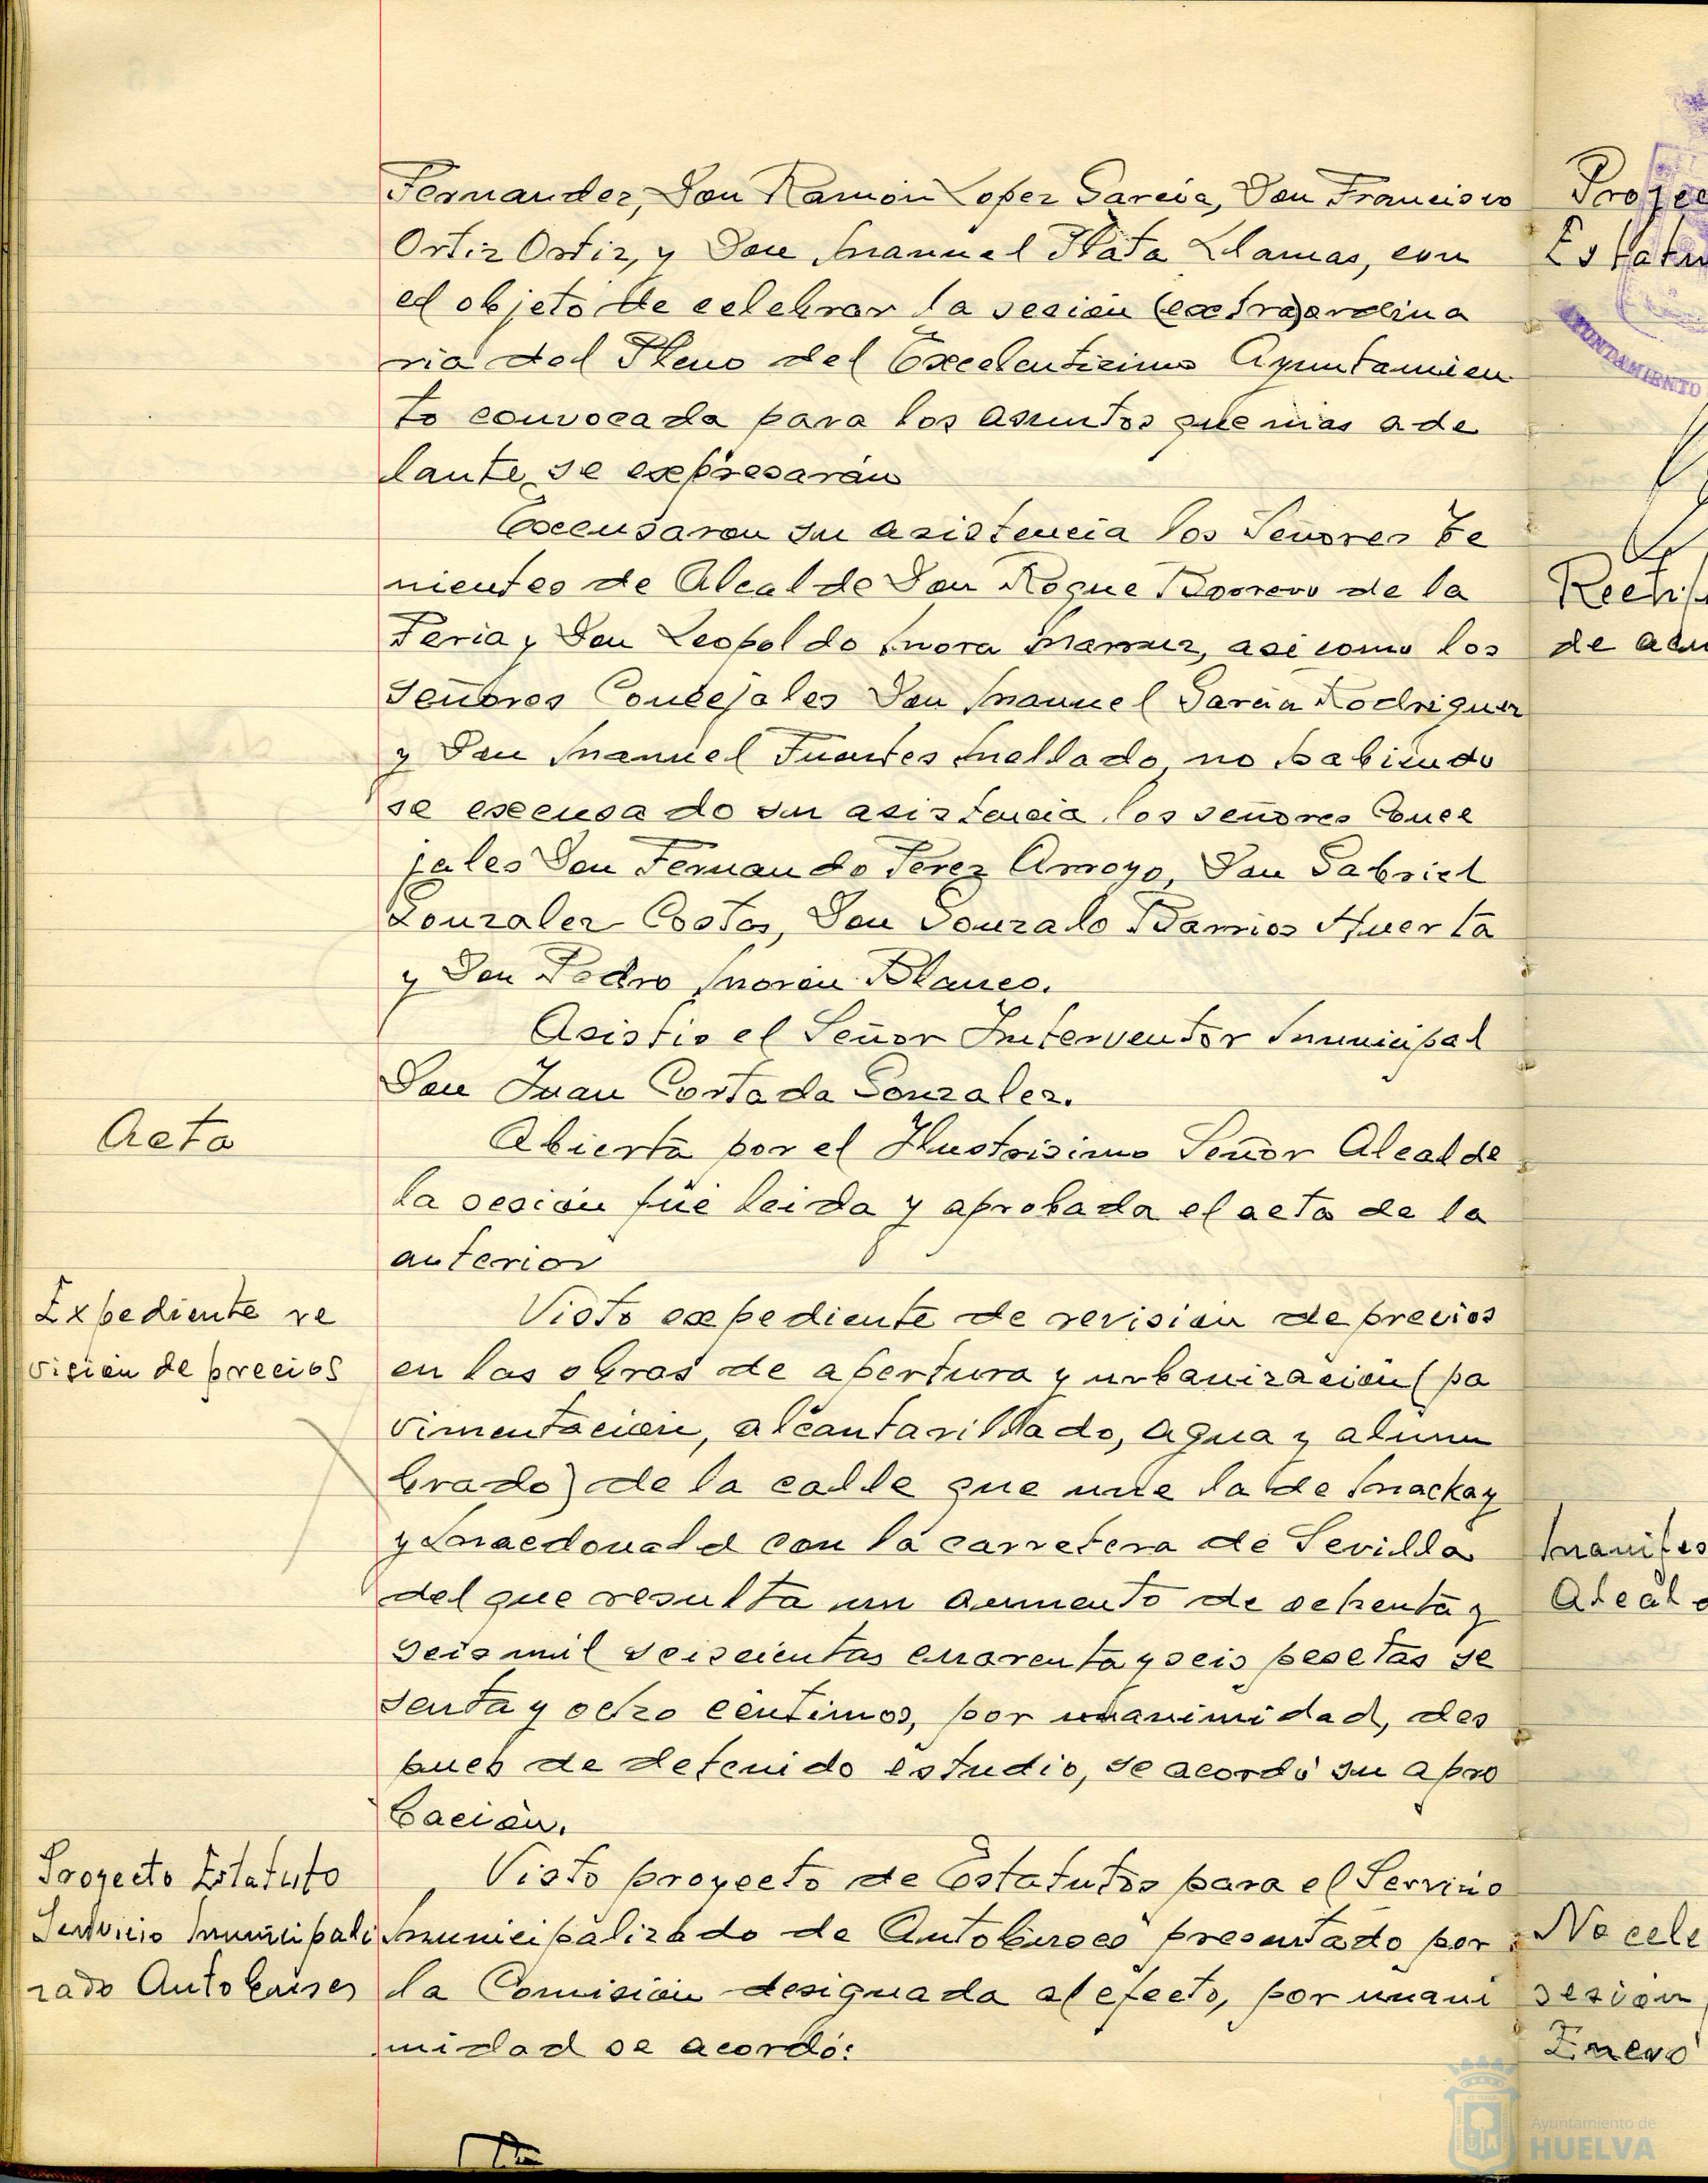 Fernandez, Don Ramón Lopez Garcia, Don Francisco
Ortiz Ortiz, y Don Manuel Plata Llamas, con
el objeto de celebrar la sesión (extra)ordina
ria del Pleno del Excelentisimo Ayuntamien
to convocada para los asuntos que mas ade
lante se expresarán
Excusaron su asistencia los Señores Te
nientes de Alcalde Don Roque Borrero de la
Feria y Don Leopoldo Mora, asi como los
Señores Concejales Don Manuel Garcia Rodriguez
y Don Manuel Fuentes Mellado, no habiendo
se excusado su asistencia los señores Conce
jales Don Fernando Perez Arroyo, Don Gabriel
Gonzalez Costas, Don Gonzalo Barrios Huerta
y Don Pedro Morón Blanco.
Asistio el Señor Interventor Municipal
Don Juan Cortada Gonzalez.
Acta
Abierta por el Ilustrisimo Señor Alcalde
la sesión fué leida y aprobada el acta de la
anterior
Expediente re
visión de precios
Visto expediente de revisión de precios
en las obras de apertura y urbanización (pa
vimentación, alcantarillado, agua y alum
brado) de la calle que une la de Mackay
y Macdonald con la carretera de Sevilla
del que resulta un aumento de ochenta y
seis mil seiscientas cuarenta y seis pesetas se
senta y ocho centimos, por unanimidad, des
pues de detenido estudio, se acordó su apro
bación.
Proyecto Estatuto
Servicio Municipali
zado Autobuses
Visto proyecto de Estatutos para el Servicio
Municipalizado de Autobuses presentado por
la Comisión designada al efecto, por unani
midad se acordó:
Proyec
Estatu
AYUNTAMIENTO
Rectif
de acu
Manifes
Alcal
No cele
sesión
Enero
Ayuntamiento de
HUELVA